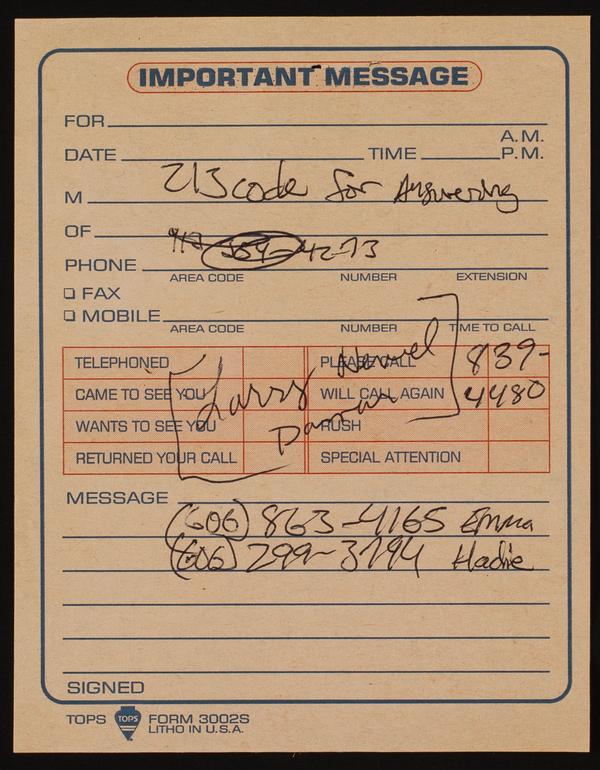 IMPORTANT MESSAGE
FOR
A.M.
DATE TIME P.M.
M 213 code for Answering
OF
PHONE 384-4273
AREA CODE NUMBER EXTENSION
FAX
MOBILE
AREA CODE NUMBER TIME TO CALL
TELEPHONED PLEASE CALL 839-
CAME TO SEE YOU WILL CALL AGAIN 4480
Larry
WANTS TO SEE YOU RUSH
RETURNED YOUR CALL SPECIAL ATTENTION
MESSAGE
(606) 863-4165 Emma
(606) 299-3794 Hadie
SIGNED
TOPS TOPS FORM 3002S
LITHO IN U.S.A.